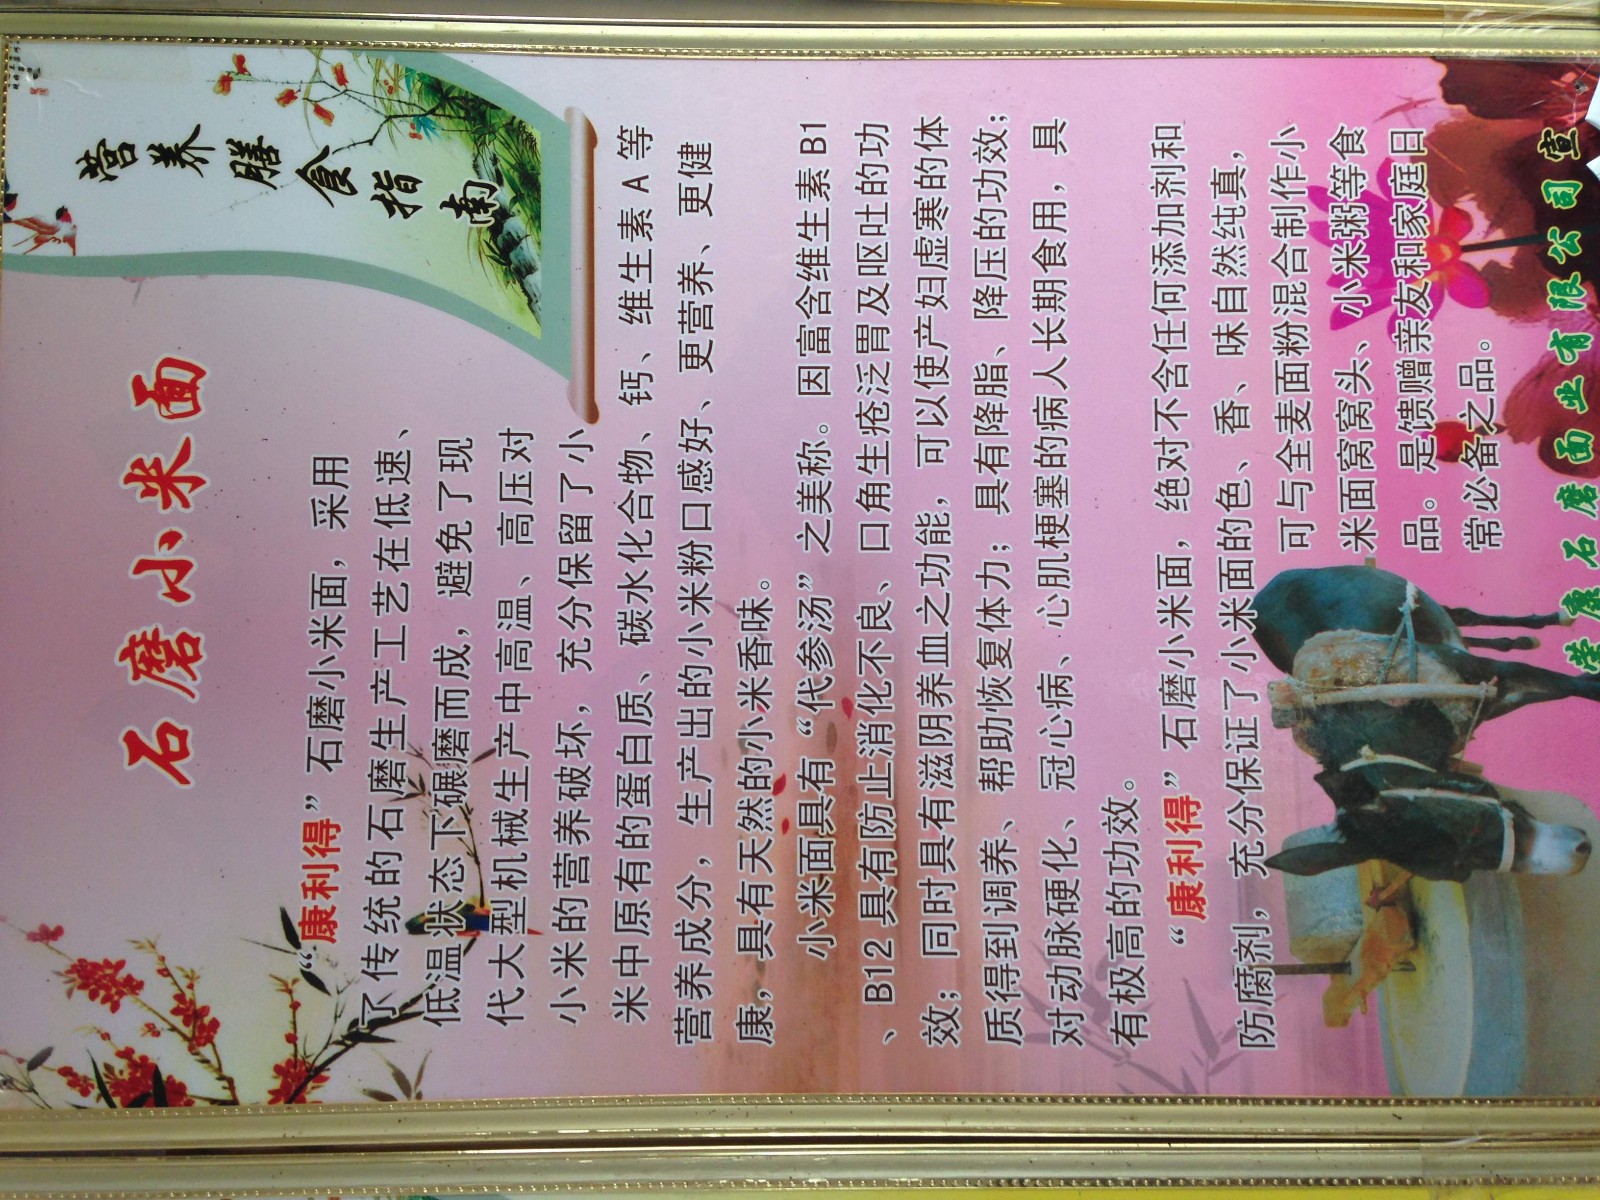 石磨小米面
营养膳食指南
“康利得”石磨小米面，采用
了传统的石磨生产工艺在低速、
低温状态下碾磨而成，避免了现
代大型机械生产中高温、高压对
小米的营养破坏，充分保留了小
米中原有的蛋白质、碳水化合物、钙、维生素A等
营养成分，生产出的小米粉口感好、更营养、更健
康，具有天然的小米香味。
小米面具有“代参汤”之美称。因富含维生素B1
、B12具有防止消化不良、口角生疮泛胃及呕吐的功
效；同时具有滋阴养血之功能，可以使产妇虚寒的体
质得到调养、帮助恢复体力；具有降脂、降压的功效；
对动脉硬化、冠心病、心肌梗塞的病人长期食用，具
有极高的功效。
“康利得”石磨小米面，绝对不含任何添加剂和
防腐剂，充分保证了小米面的色、香、味自然纯真，
可与全麦面粉混合制作小
米面窝窝头、小米粥等食
品。是馈赠亲友和家庭日
常必备之品。
荣康石磨面业有限公司 宣